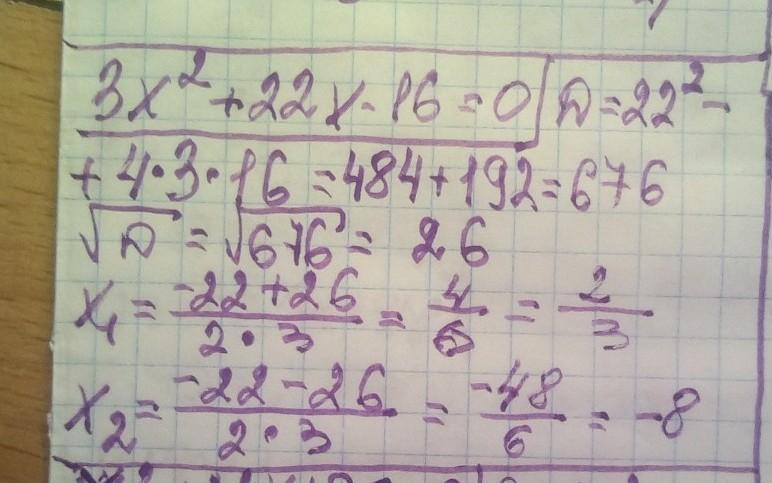 3x² + 22x - 16 = 0 D = 22² -
+ 4·3·16 = 484 + 192 = 676
√D = √676 = 26
x₁ = (-22 + 26)/(2·3) = 4/6 = 2/3
x₂ = (-22 - 26)/(2·3) = -48/6 = -8